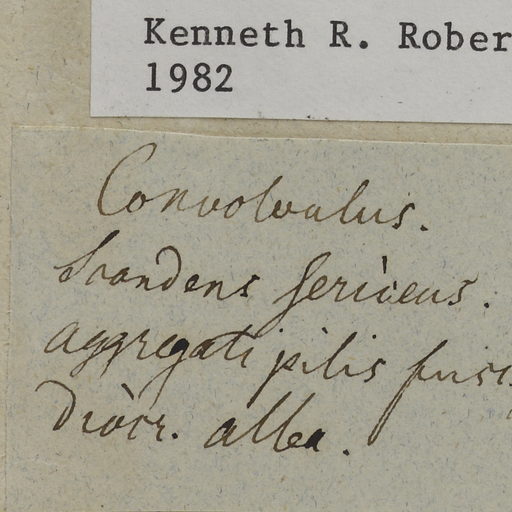 Kenneth R. Rober
1982
Convolvulus.
Scandens sericeus.
aggregati pilis fusc
diòcr. alba.